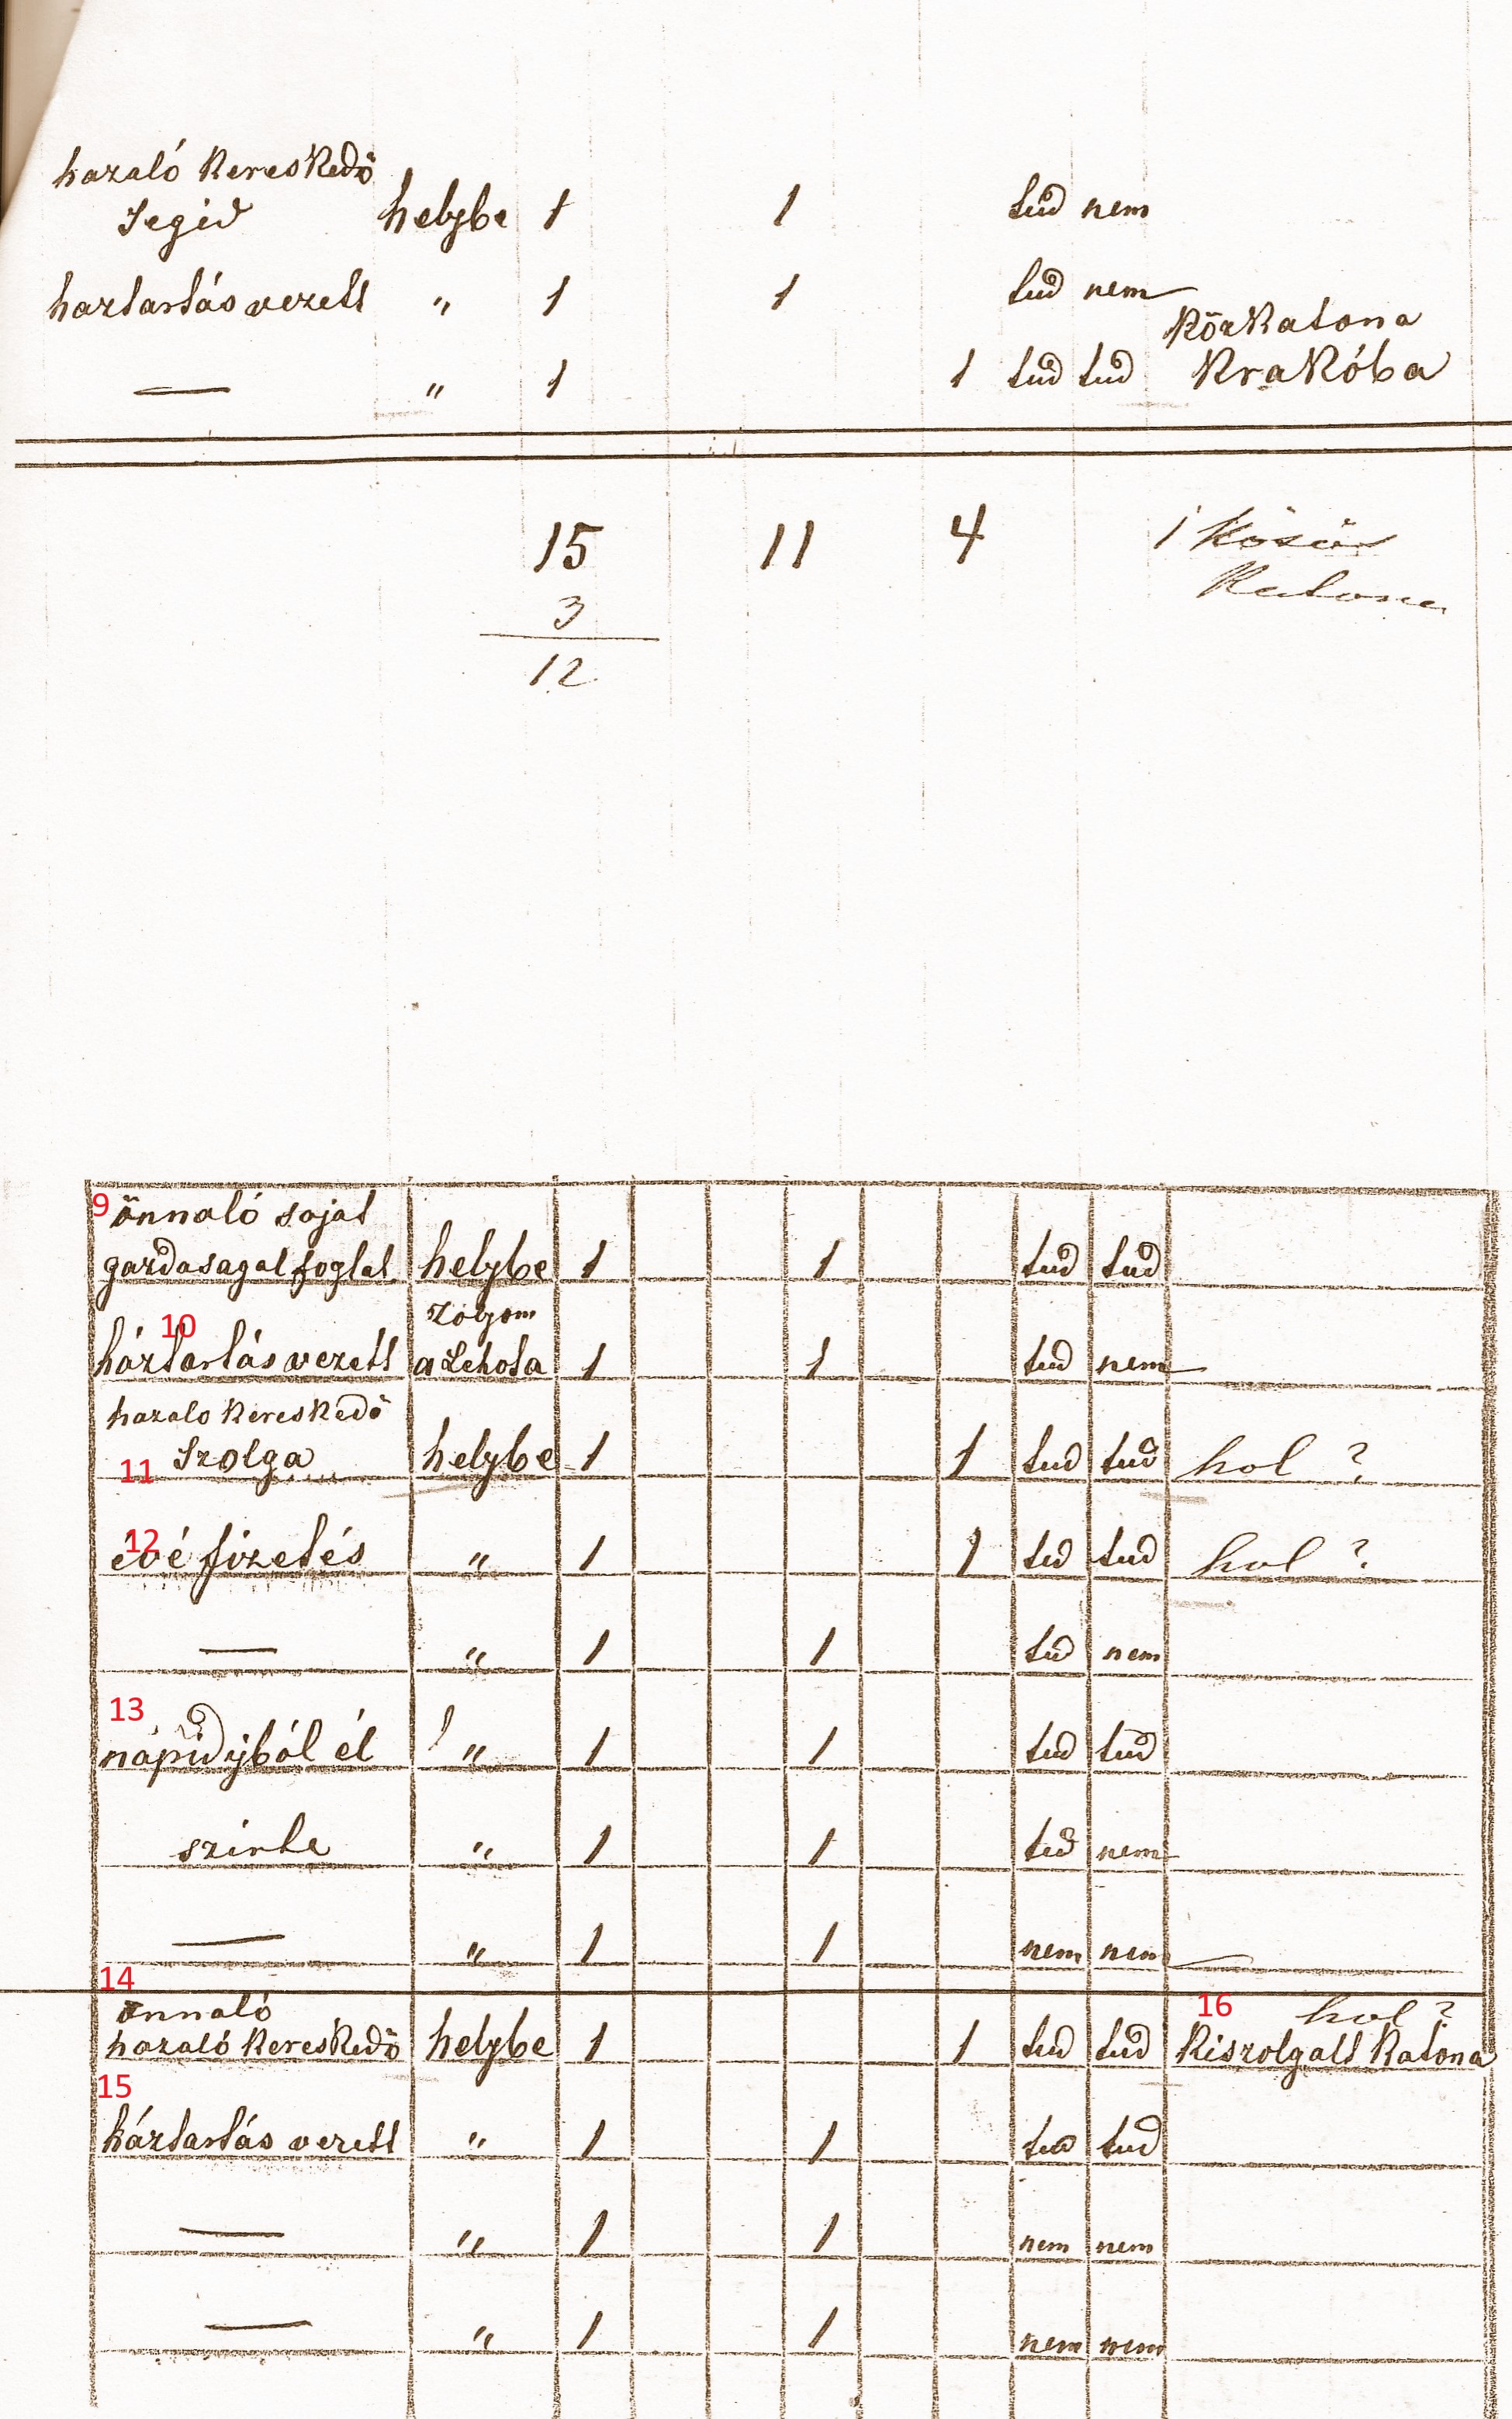 hazaló kereskedő
segid helybe 1 1 tud nem
haztartás vezett " 1 1 tud nem
közkatona
— " 1 1 tud tud Krakóba
15 11 4 1 közös
3 Katona
12
9 önnaló sajat
gazdasagal foglal helybe 1 1 tud tud
Zolyom
10
háztartás vezett a Lehota 1 1 tud nem
hazalo kereskedő
11 szolga helybe 1 1 tud tud hol ?
12
évé fizetés " 1 1 tud tud hol ?
— " 1 1 tud nem
13
napidijból él " 1 1 tud tud
szinte " 1 1 tud nem
— " 1 1 nem nem
14
önnaló 16 hol ?
hazaló kereskedő helybe 1 1 tud tud Kiszolgalt Katona
15
háztartás vezett " 1 1 tud tud
— " 1 1 nem nem
— " 1 1 nem nem